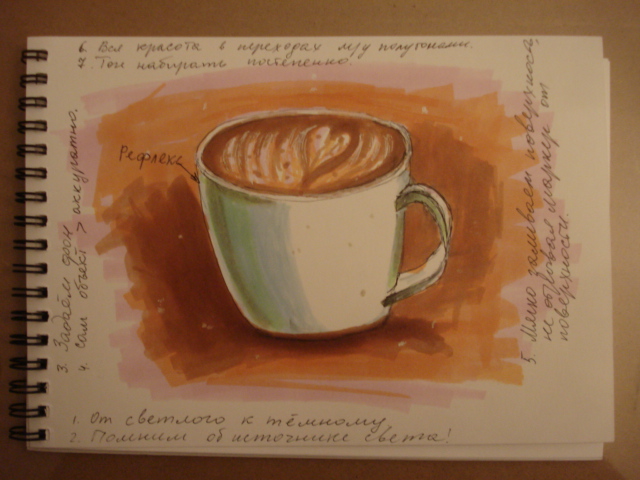 6. Вся красота в переходах м/у полутонами.
Тон набирать постепенно.
Рефлекс
3. Задаём фон
4. сам объект > аккуратно.
5. Мягко заливаем поверхность,
не отрывая маркер от
поверхности.
1. От светлого к тёмному
2. Помним об источнике света!